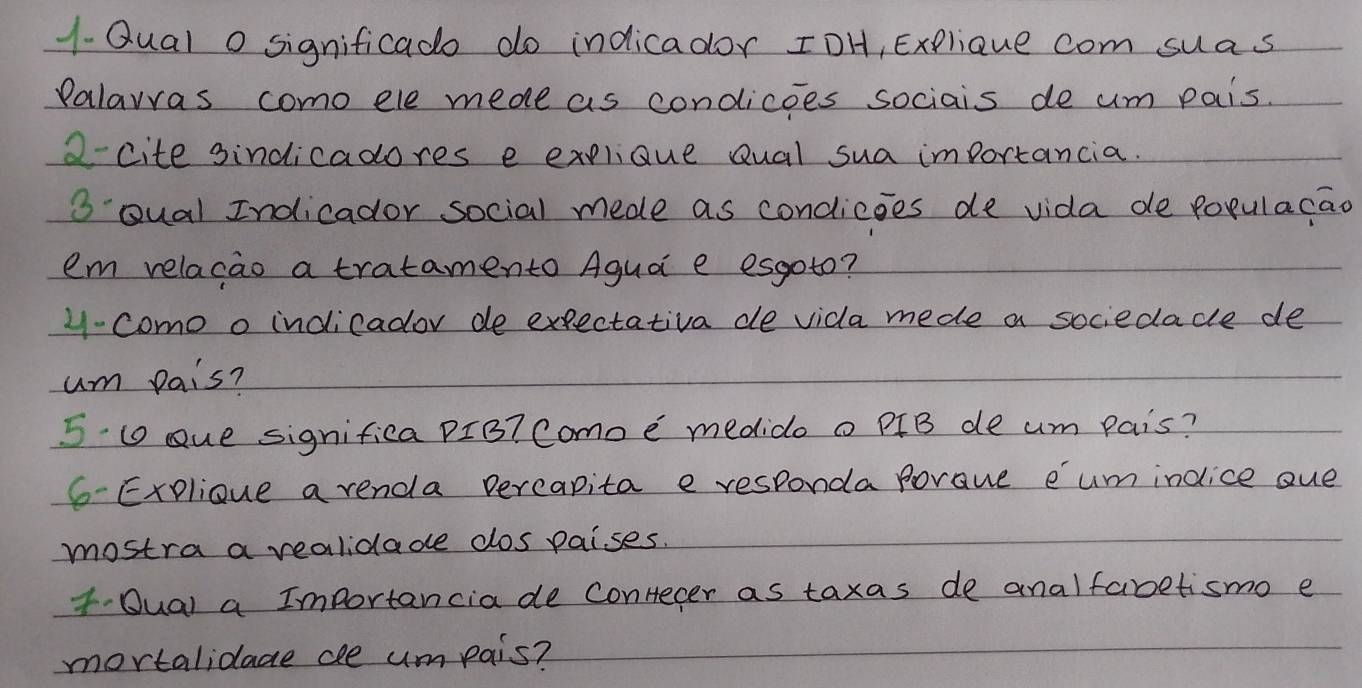 1- Qual o significado do indicador IDH, Explique com suas
Palavras como ele mede as condições sociais de um país.
2- cite 3 indicadores e explique Qual sua importancia.
3- Qual Indicador social mede as condições de vida de população
em relação a tratamento Aguá e esgoto?
4- Como o indicador de expectativa de vida mede a sociedade de
um país?
5- O Que significa PIB? Como é medido o PIB de um país?
6- Explique a renda Percapita e responda Porque é um indice que
mostra a realidade dos países.
7- Qual a Importancia de Conhecer as taxas de analfabetismo e
mortalidade de um país?